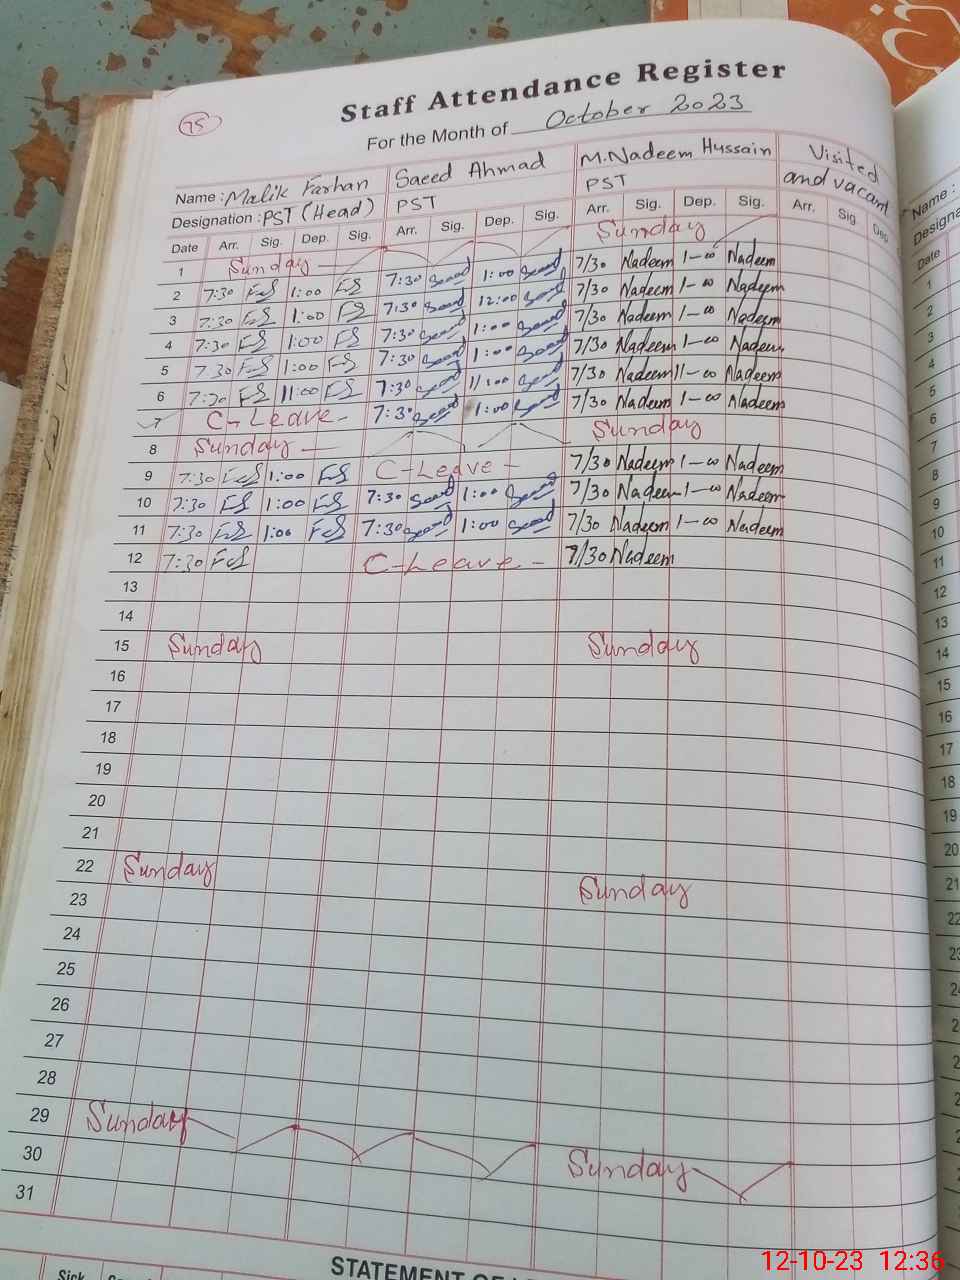 75
Staff Attendance Register
For the Month of October 2023
Name : Malik Farhan Saeed Ahmad M. Nadeem Hussain Visited
Designation : PST (Head) PST PST and vacant
Date Arr. Sig. Dep. Sig. Arr. Sig. Dep. Sig. Arr. Sig. Dep. Sig. Arr. Sig. Dep
1 Sunday Sunday
2 7:30 FeS 1:00 FS 7:30 Saeed 1:00 Saeed 7/30 Nadeem 1-00 Nadeem
3 7:30 FS 1:00 FS 7:30 Saeed 12:00 Saeed 7/30 Nadeem 1-00 Nadeem
4 7:30 FS 1:00 FS 7:30 Saeed 1:00 Saeed 7/30 Nadeem 1-00 Nadeem
5 7:30 FeS 1:00 FeS 7:30 Saeed 1:00 Saeed 7/30 Nadeem 1-00 Nadeem
6 7:30 FS 11:00 FS 7:30 Saeed 11:00 Saeed 7/30 Nadeem 11-00 Nadeem
7 C-Leave- 7:30 Saeed 1:00 Saeed 7/30 Nadeem 1-00 Nadeem
8 Sunday Sunday
9 7:30 FeS 1:00 FS C-Leave - 7/30 Nadeem 1-00 Nadeem
10 7:30 FS 1:00 FS 7:30 Saeed 1:00 Saeed 7/30 Nadeem 1-00 Nadeem
11 7:30 FeS 1:00 FeS 7:30 Saeed 1:00 Saeed 7/30 Nadeem 1-00 Nadeem
12 7:30 FeS C-Leave - 7/30 Nadeem
13
14
15 Sunday Sunday
16
17
18
19
20
21
22 Sunday Sunday
23
24
25
26
27
28
29 Sunday Sunday
30
31
STATEMENT OF
Sick
Name :
Designa
Date
1
2
3
4
5
6
7
8
9
10
11
12
13
14
15
16
17
18
19
20
21
22
12-10-23 12:36